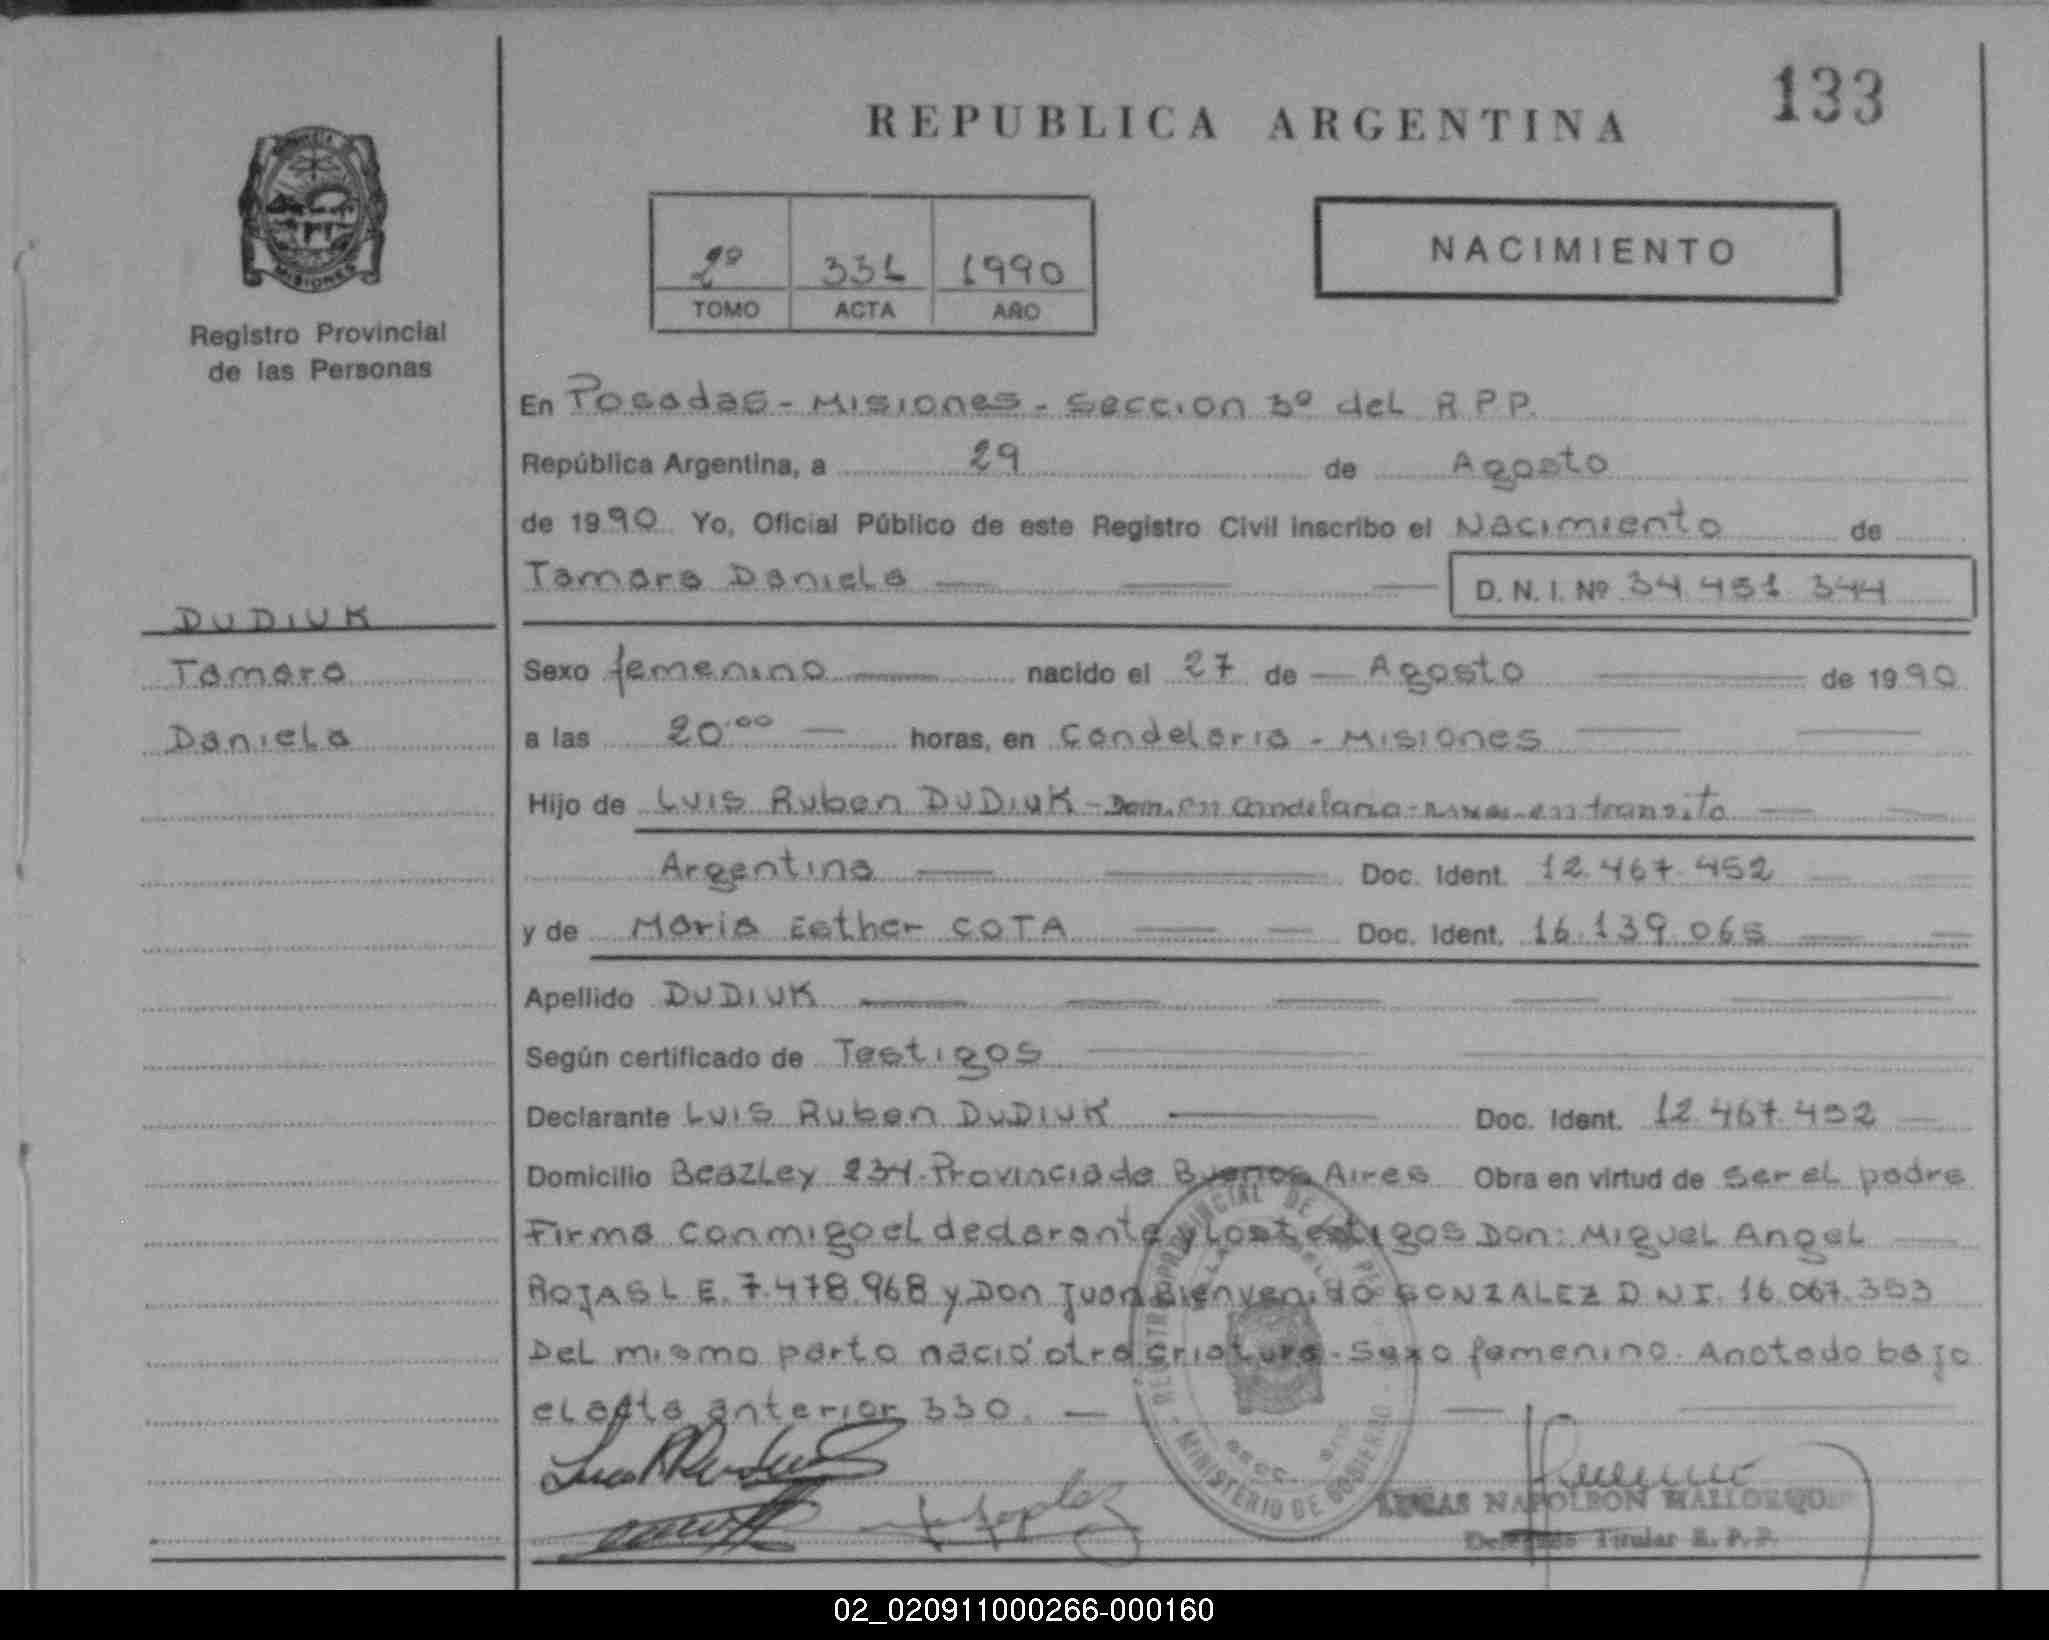 133
REPUBLICA ARGENTINA
MISIONES
Registro Provincial
de las Personas
2º 331 1990
TOMO ACTA AÑO
NACIMIENTO
En Posadas - Misiones - Seccion 3º del R.P.P.
República Argentina, a 29 de Agosto
de 1990 Yo, Oficial Público de este Registro Civil inscribo el Nacimiento de
Tamara Daniela D. N. I. Nº 34.451.344
DUDIUK
Tamara
Daniela
Sexo femenino nacido el 27 de Agosto de 1990
a las 20:00 horas, en Candelaria - Misiones
Hijo de Luis Ruben DUDIUK - Dom. en Candelaria - en transito
Argentina Doc. Ident. 12.467.452
y de Maria Esther COTA Doc. Ident. 16.139.065
Apellido DUDIUK
Según certificado de Testigos
Declarante Luis Ruben DUDIUK Doc. Ident. 12.467.452
Domicilio Beazley 234 - Provincia de Buenos Aires Obra en virtud de Ser el padre
Firma conmigo el declarante y los testigos Don: Miguel Angel
ROJAS L.E. 7.478.968 y Don Juan Bienvenido GONZALEZ D.N.I. 16.067.353
Del mismo parto nació otra criatura - Sexo femenino. Anotado bajo
el acta anterior 330.
REGISTRO PROVINCIAL DE LAS PERSONAS
MINISTERIO DE GOBIERNO
LUCAS NAPOLEON MALLORQUIN
Delegado Titular R. P. P.
02_020911000266-000160